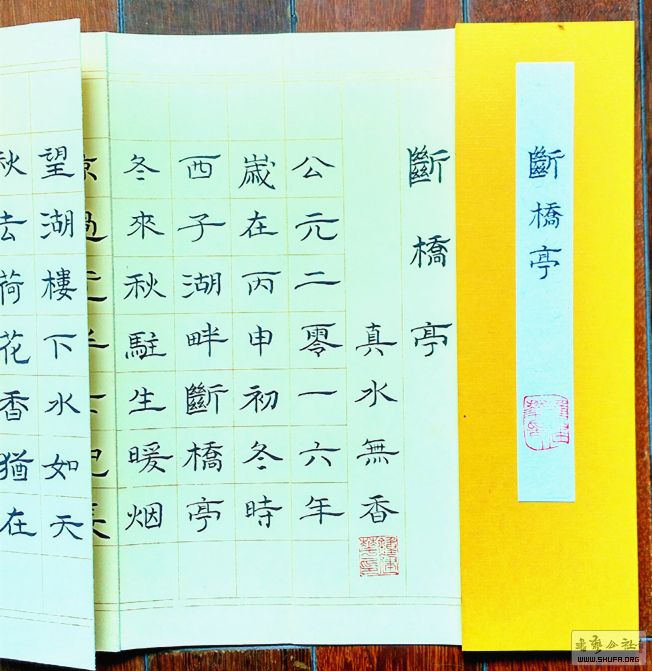 斷橋亭
斷橋亭
真水無香
公元二零一六年
歲在丙申初冬時
西子湖畔斷橋亭
冬來秋駐生暖烟
望湖樓下水如天
秋去荷花香猶在
WWW.SHUFA.ORG